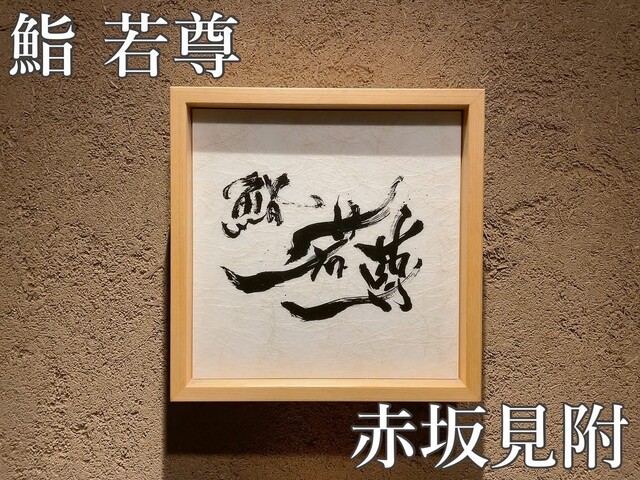 鮨 若尊
鮨 若尊
赤坂見附